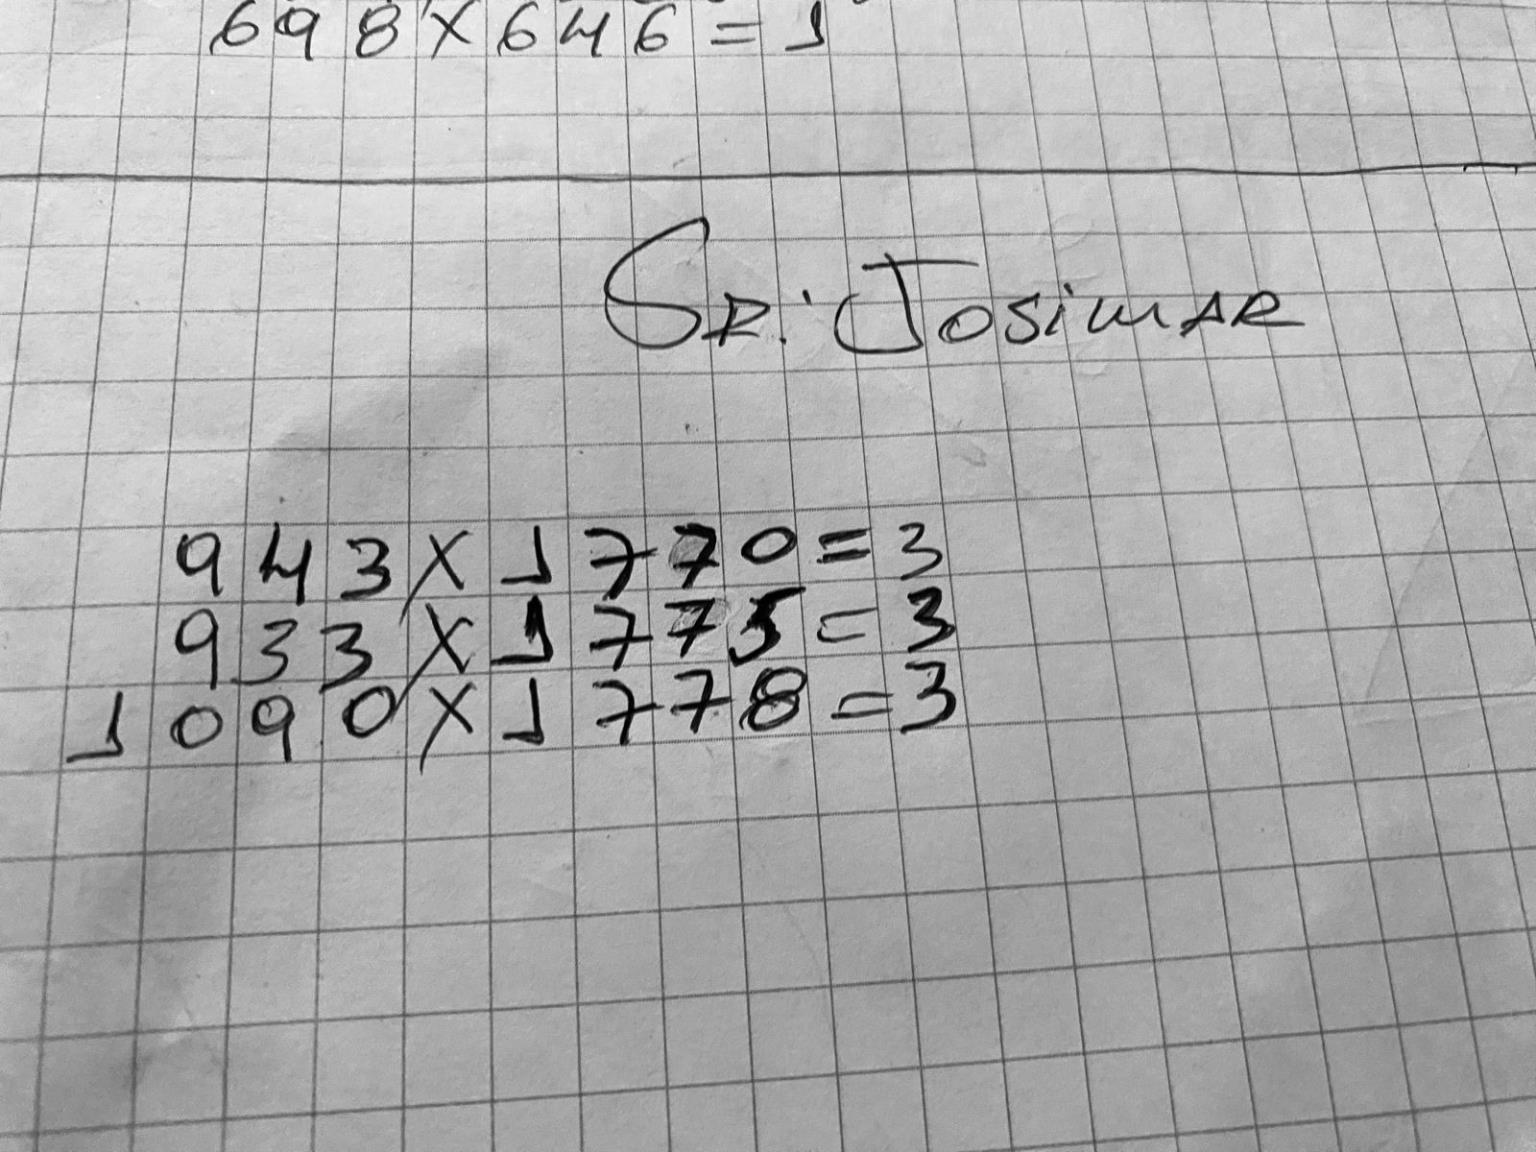 698X646=1
SR. Josimar
943X1770=3
933X1775=3
1090X1778=3